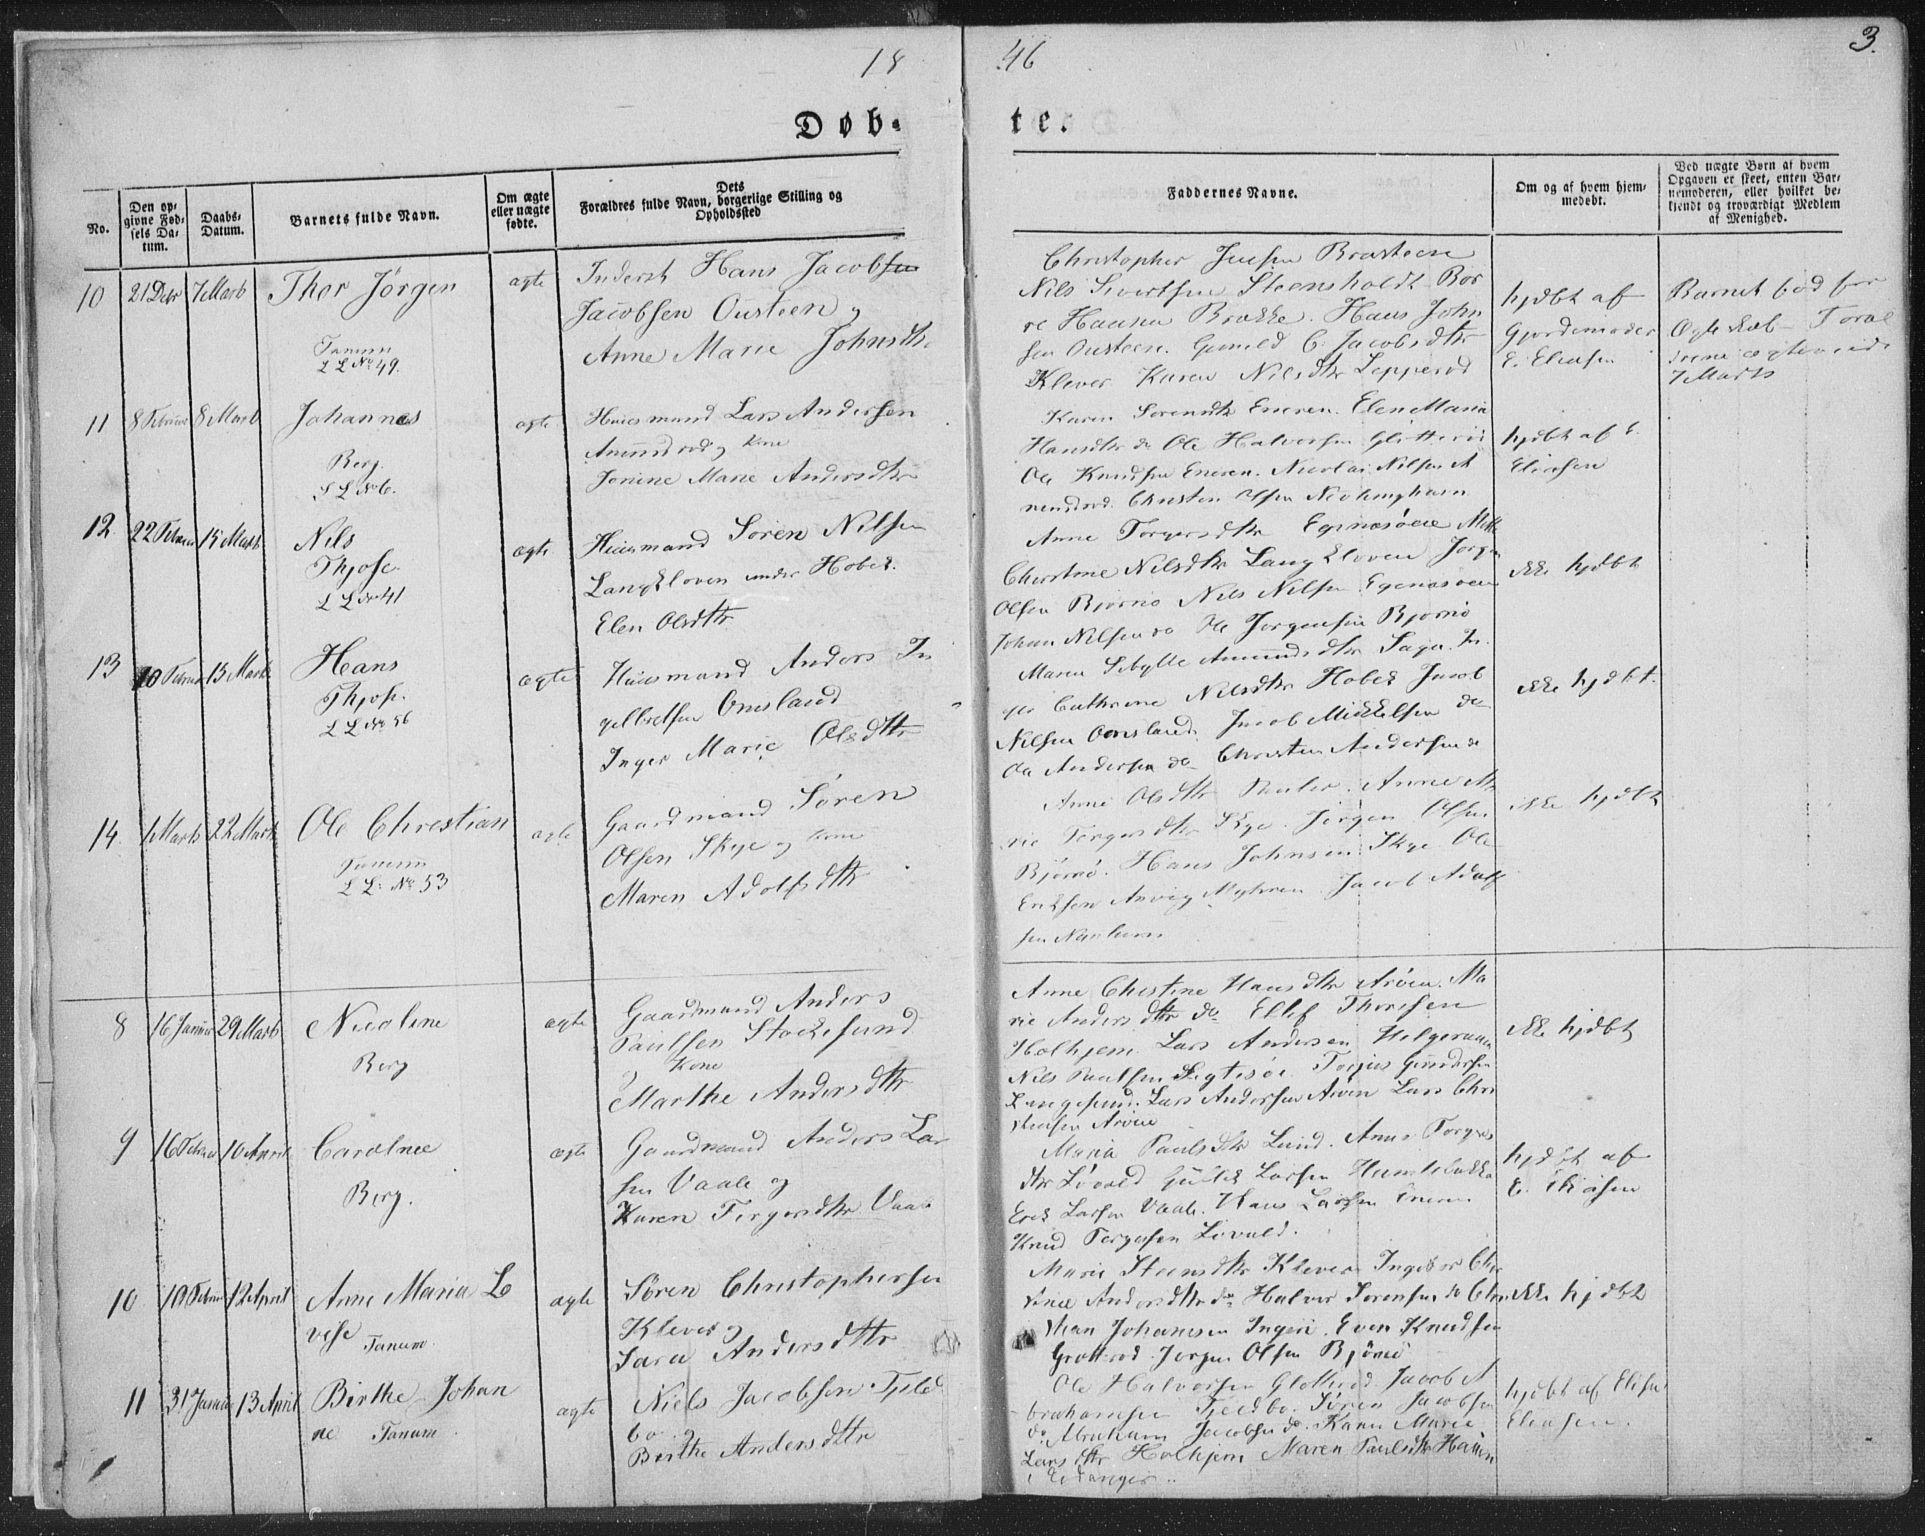 18 46 3.
Døb- te.
No.
Den op-
givne Fød-
sels Da-
tum.
Daabs-
Datum.
Barnets fulde Navn.
Om ægte
eller uægte
fødte.
Dets
Forældres fulde Navn, borgerlige Stilling og
Opholdssted
Faddernes Navne.
Om og af hvem hjem-
medøbt.
Ved uægte Børn af hvem
Opgaven er skeet, enten Bar-
nemoderen, eller hvilket be-
kjendt og troværdigt Medlem
af Menighed.
10 21 Decbr 7 Marts Thor Jörgen ægte Inderst Hans Jacobsen
Jacobsen Ousteen og
Anne Marie Johnsdtr
Tanum
L L No 49.
Christopher Jensen Brasteen
Nils Sivertsen Steensholdt Bor
re Hansen Brække. Hans John
sen Ousteen. Gunild C. Jacobsdtr
Klever Karen Nilsdtr Lepperød
hjdbt af
Gjordemoder
E. Eliasen
Barnet fød før
Ægteskab
7 Marts
11 8 Februar 8 Marts Johannes ægte Huusmand Lars Andersen
Amundrød og Kone
Jonine Marie Andersdtr
Berg.
L L No 6.
Karen Sorensdtr Eneren. Elen Maria
Hansdtr do Ole Halvorsen Glötterød
Ole Knudsen Eneren. Nicolai Nilsen A
mundrød. Christen Olsen Nevlunghavn
hjdbt af E.
Eliasen
12. 22 Februar 15 Marts Nils ægte Huusmand Sören Nilsen
Langkloven under Hobek.
Elen Olsdtr
Thjose.
L L No 41
Anne Torgersdtr Eqenæsöen
Christine Nilsdtr Langkloven Jörgen
Olsen Bjørnö Nils Nilsen Eqenæsöen
Johan Nilsen do Ole Jörgensen Bjornö
ikke hjdbt
13 10 Februar 15 Marts Hans ægte Huusmand Anders In
gelbretsen Omsland
Inger Marie Olsdtr
Thjose.
L L No 56
Maren Sibylle Amundsdtr
Cathrine Nilsdtr Hobek Jacob
Nilsen Omsland Jacob Mikkelsen do
Ole Andersen do Christen Andersen do
ikke hjdbt.
14. 1 Marts 22 Marts Ole Christian ægte Gaardmand Sören
Olsen Skye og Kone
Maren Adolfsdtr
Tanum
L L: No 53
Anne Olsdtr Anne Ma
rie Torgersdtr Skye. Jörgen Olsen
Bjørnö. Hans Johnsen Skye Ole
Eriksen Anvig Myhren Jacob Adolf
sen
ikke hjdbt
8 16 Januar 29 Marts Nicoline ægte Gaardmand Anders
Paulsen Stokesund
og Kone
Marthe Andersdtr
Berg
Anne Christine Hansdtr Aröen. Ma
rie Andersdtr do Ellef Thoresen
Holhjem. Lars Andersen Helgeraaen
Nils Paulsen Torjus Gundersen
Langesund. Lars Andersen Aröen Lars Chri
stensen Aröen
ikke hjdbt
9 16 Februar 10 April Caroline ægte Gaardmand Anders Lar
sen Vaale og
Karen Torgersdtr Vaale
Berg.
Maria Paulsdtr Lund. Anne Torgers
dtr Lövald Gullik Larsen Humlebække
Erik Larsen Vaale. Hans Larsen Eneren
Knud Torgersen Lövald.
hjdbt af
E. Eliasen
10 10 Februar 12 April Anne Maria Lo
vise ægte Sören Christophersen
Klever og
Sara Andersdtr
Tanum.
Marie Steensdtr Klever Ingebor Chri
stine Andersdtr do Halvor Sorensen do Chri
stian Johannesen Even Knudsen
Grotterød. Jorgen Olsen Bjönnö
ikke hjdbt
11 31 Januar 13 April Birthe Johan
ne Tanum. ægte Niels Jacobsen Tjeld
bo og
Birthe Andersdtr
Ole Halvorsen Glotterød Jacob A
brahamsen Tjeldbo. Sören Jacobsen
do Abraham Jacobsen do. Karen Marie
Larsdtr Holhjem Maren Paulsdtr
i Eidanger.
hjdbt af Elise
Eliasen.